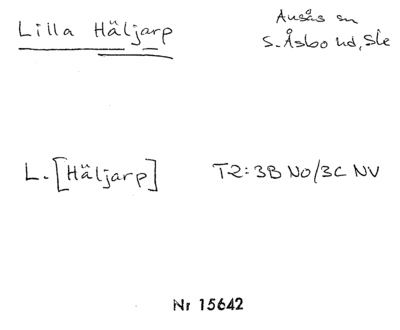 Lilla Häljarp
Ausås sn
S. Åsbo hd, Sk
L. [Häljarp]
T2: 3B NO/3C NV
Nr 15642